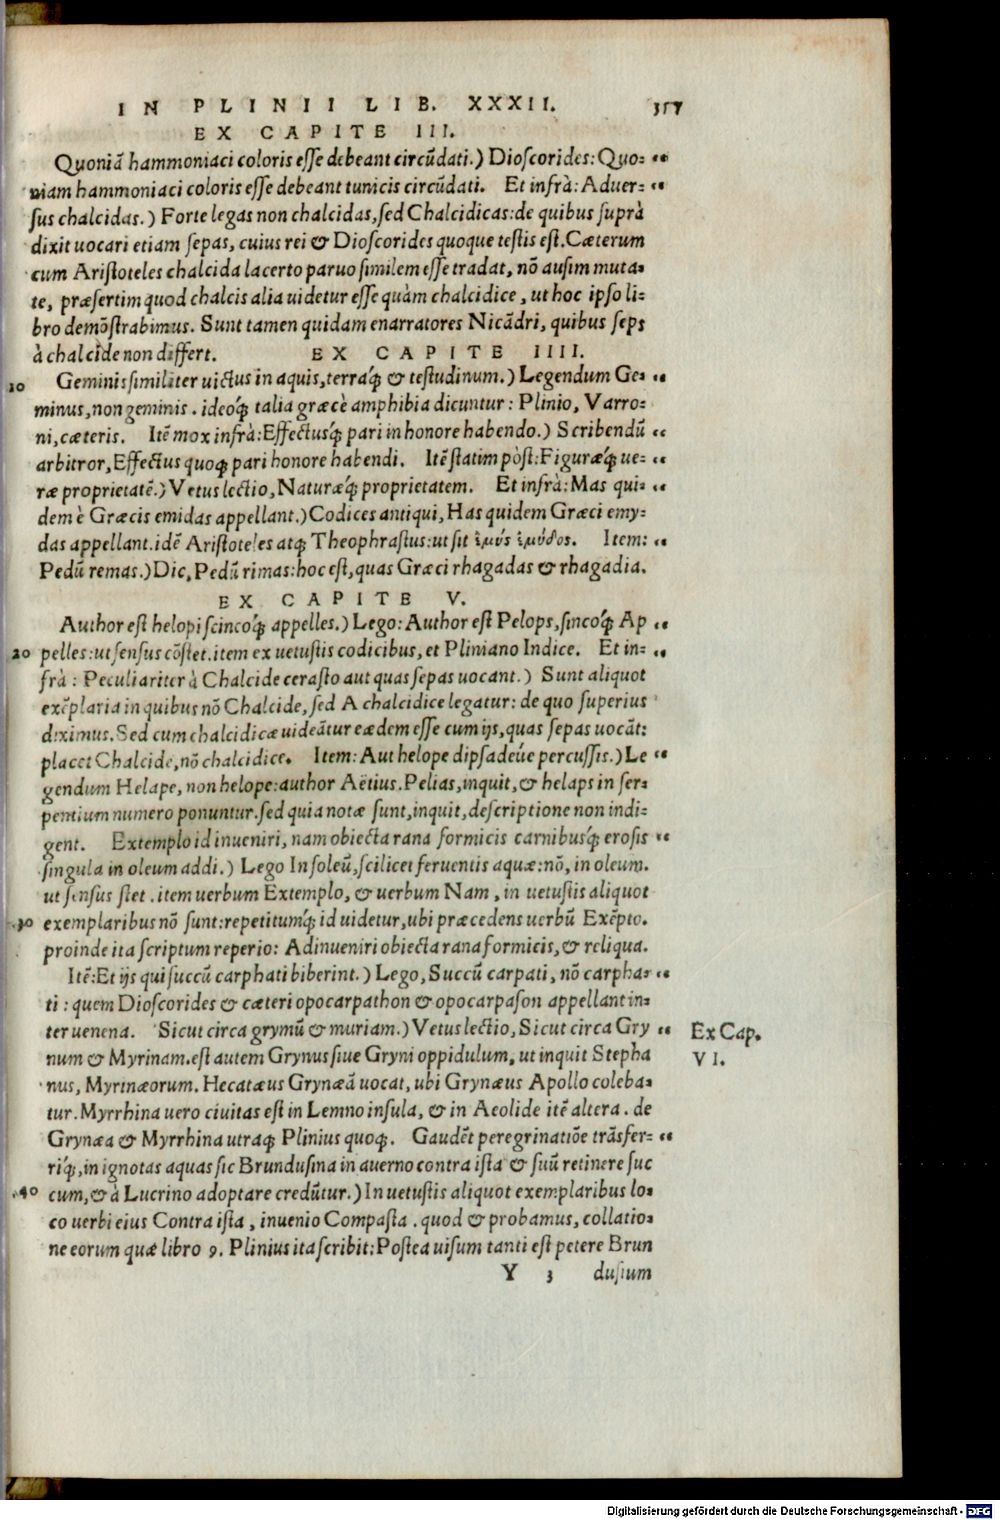 IN PLINII LIB. XXXII. 357
EX CAPITE III.
Quoniā hammoniaci coloris esse debeant circūdati.) Dioscorides: Quo= “
niam hammoniaci coloris esse debeant tunicis circūdati. Et infrà: Aduer= “
sus chalcidas.) Forte legas non chalcidas, sed Chalcidicas: de quibus suprà
dixit uocari etiam sepas, cuius rei & Dioscorides quoque testis est. Cæterum
cum Aristoteles chalcida lacerto paruo similem esse tradat, nō ausim muta=
te, præsertim quod chalcis alia uidetur esse quàm chalcidice, ut hoc ipso li=
bro demōstrabimus. Sunt tamen quidam enarratores Nicādri, quibus seps
à chalcide non differt. EX CAPITE IIII.
10 Geminis similiter uictus in aquis, terraq́; & testudinum.) Legendum Ge= “
minus, non geminis. ideoq́; talia græcè amphibia dicuntur: Plinio, Varro=
ni, cæteris. Itē mox infrà: Effectusq́; pari in honore habendo.) Scribendū “
arbitror, Effectus quoq; pari honore habendi. Itē statim pòst: Figuræq́; ue= “
ræ proprietatē.) Vetus lectio, Naturæq́; proprietatem. Et infrà: Mas qui= “
dem è Græcis emidas appellant.) Codices antiqui, Has quidem Græci emy=
das appellant. idē Aristoteles atq; Theophrastus: ut sit ἐμύς ἐμύδος. Item: “
Pedū remas.) Dic, Pedū rimas: hoc est, quas Græci rhagadas & rhagadia.
EX CAPITE V.
Author est helopi scincoq́; appelles.) Lego: Author est Pelops, sincoq́; Ap “
20 pelles: ut sensus cōstet. item ex uetustis codicibus, et Pliniano Indice. Et in= “
frà: Peculiariter à Chalcide cerasto aut quas sepas uocant.) Sunt aliquot
exēplaria in quibus nō Chalcide, sed A chalcidice legatur: de quo superius
diximus. Sed cum chalcidicæ uideātur eædem esse cum ijs, quas sepas uocāt:
placet Chalcide, nō chalcidice. Item: Aut helope dipsadeúe percussis.) Le “
gendum Helape, non helope: author Aëtius. Pelias, inquit, & helaps in ser=
pentium numero ponuntur. sed quia notæ sunt, inquit, descriptione non indi=
gent. Extemplo id inueniri, nam obiecta rana formicis carnibusq́; erosis “
singula in oleum addi.) Lego In soleū, scilicet feruentis aquæ: nō, in oleum.
ut sensus stet. item uerbum Extemplo, & uerbum Nam, in uetustis aliquot
30 exemplaribus nō sunt: repetitumq́; id uidetur, ubi præcedens uerbū Exēpto.
proinde ita scriptum reperio: Ad inueniri obiecta rana formicis, & reliqua.
Itē: Et ijs qui succū carphati biberint.) Lego, Succū carpati, nō carpha= “
ti: quem Dioscorides & cæteri opocarpathon & opocarpason appellant in=
ter uenena. Sicut circa grymū & muriam.) Vetus lectio, Sicut circa Gry “ Ex Cap.
num & Myrinam. est autem Grynus siue Gryni oppidulum, ut inquit Stepha VI.
nus, Myrinæorum. Hecatæus Grynæā uocat, ubi Grynæus Apollo coleba=
tur. Myrrhina uero ciuitas est in Lemno insula, & in Aeolide itē altera. de
Grynæa & Myrrhina utraq; Plinius quoq;. Gaudēt peregrinatiōe trāsfer= “
riq́;, in ignotas aquas sic Brundusina in auerno contra ista & suū retinere suc
40 cum, & à Lucrino adoptare credūtur.) In uetustis aliquot exemplaribus lo=
co uerbi eius Contra ista, inuenio Compasta. quod & probamus, collatio=
ne eorum quæ libro 9. Plinius ita scribit: Postea uisum tanti est petere Brun
Y 3 dusium
Digitalisierung gefördert durch die Deutsche Forschungsgemeinschaft - DFG